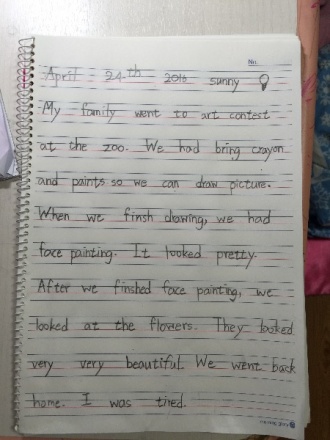 No.
April 24th 2016 sunny
My family went to art contest
at the zoo. We had bring crayon
and paints so we can draw picture.
When we finsh drawing, we had
face painting. It looked pretty.
After we finshed face painting, we
looked at the flowers. They looked
very very beautiful. We went back
home. I was tired.